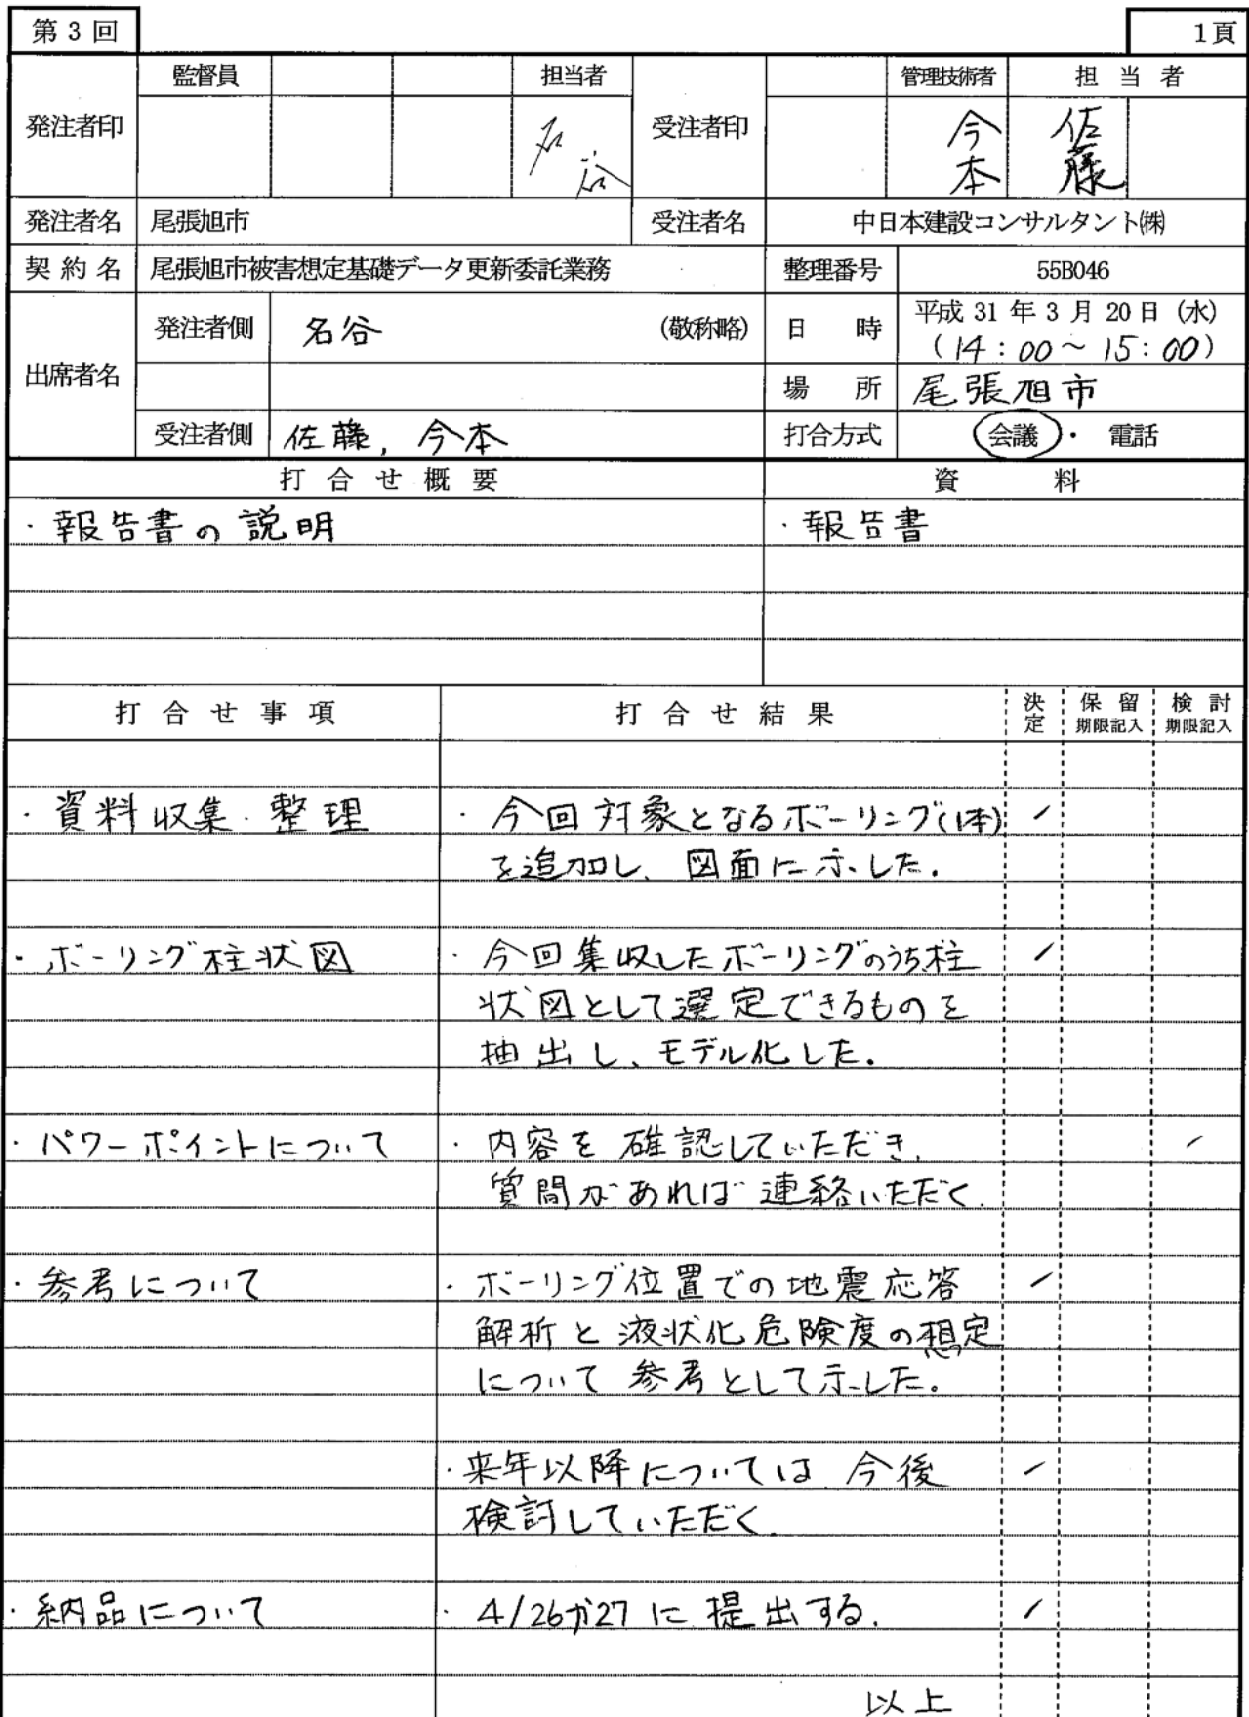 第 3 回
1頁
発注者印 監督員 担当者 受注者印 管理技術者 担 当 者
名谷 今本 佐藤
発注者名 尾張旭市 受注者名 中日本建設コンサルタント㈱
契 約 名 尾張旭市被害想定基礎データ更新委託業務 整理番号 55B046
出席者名 発注者側 名谷 (敬称略) 日 時 平成 31 年 3 月 20 日 (水)
(14:00~15:00)
場 所 尾張旭市
受注者側 佐藤, 今本 打合方式 会議・ 電話
打 合 せ 概 要 資 料
・報告書の説明 ・報告書
打 合 せ 事 項 打 合 せ 結 果 決定 保 留 期限記入 検 討 期限記入
・資料収集・整理 ・今回対象となるボーリング(1本)
を追加し、図面に示した.
・ボーリング柱状図 ・今回集収したボーリングのうち柱
状図として選定できるものを
抽出し、モデル化した.
・パワーポイントについて ・内容を確認していただき、
質問があれば連絡いただく.
・参考について ・ボーリング位置での地震応答
解析と液状化危険度の想定
について参考として示した。
・来年以降については今後
検討していただく.
・納品について ・4/26か27に提出する.
以上